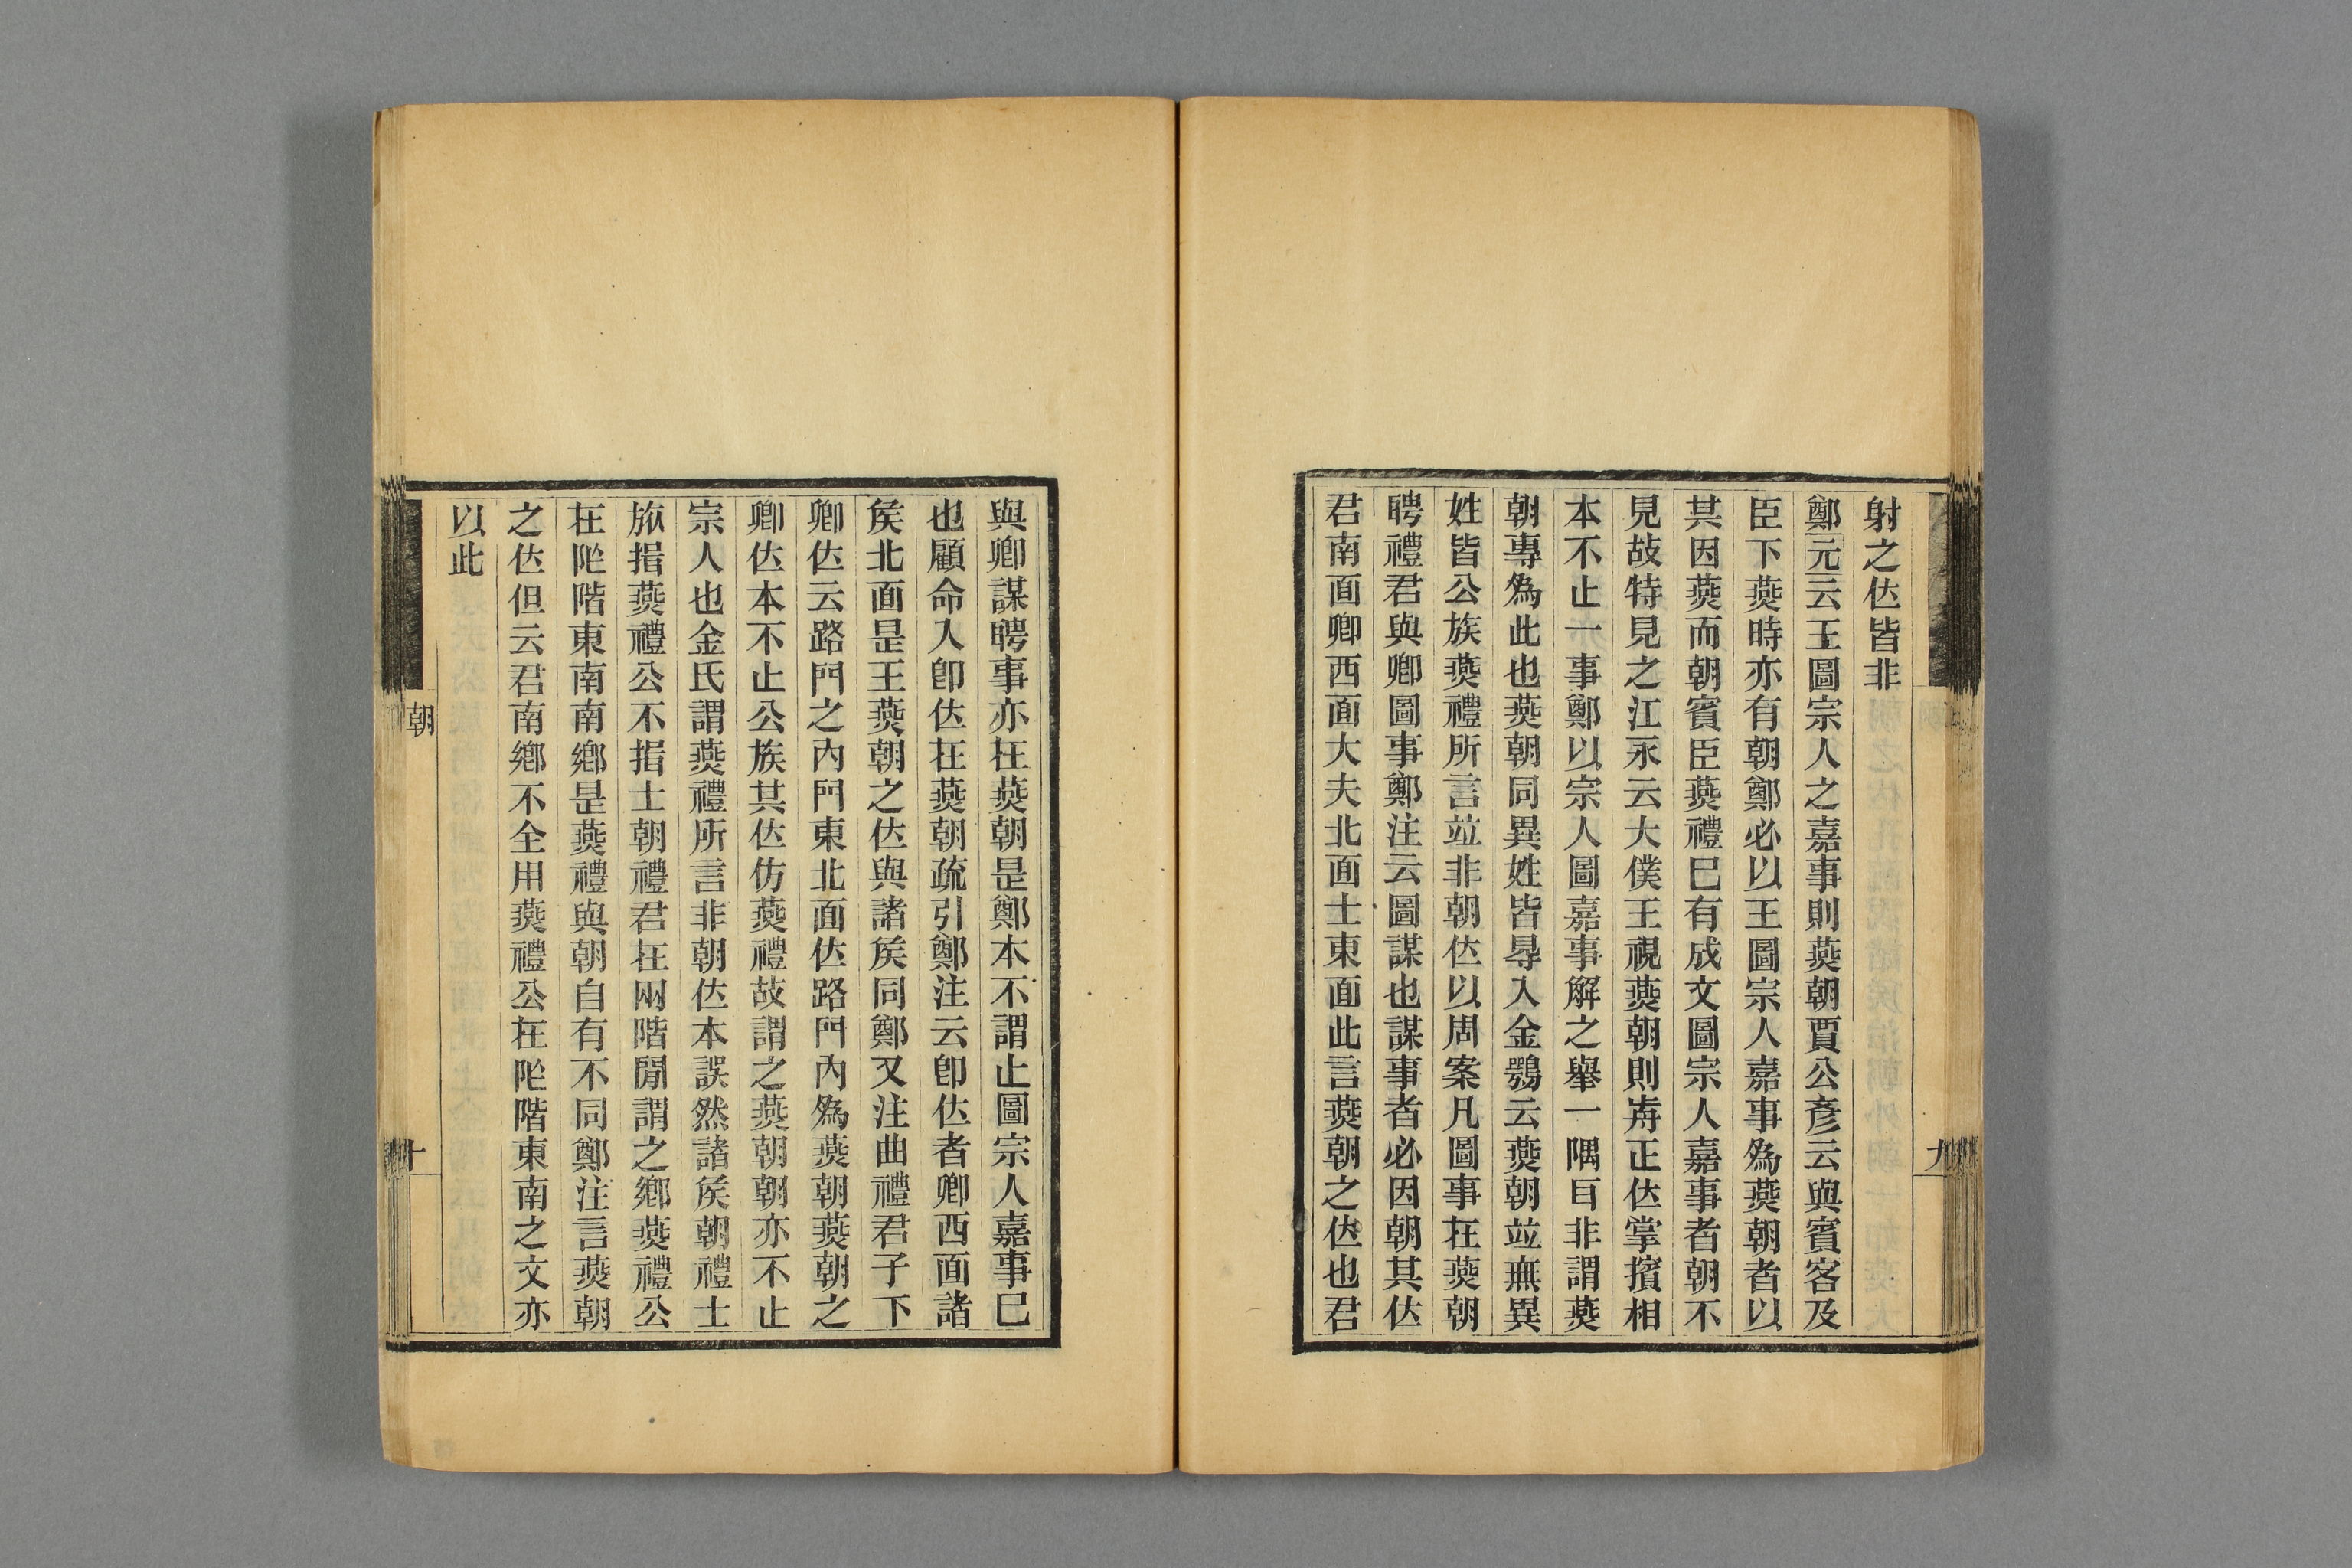 射之位皆非
鄭元云王圖宗人之嘉事則燕朝賈公彥云與賓客及
臣下燕時亦有朝鄭必以王圖宗人嘉事為燕朝者以
其因燕而朝賓臣燕禮已有成文圖宗人嘉事者朝不
見故特見之江永云大僕王視燕朝則歬正位掌擯相
本不止一事鄭以宗人圖嘉事解之舉一隅目非謂燕
朝專為此也燕朝同異姓皆㝵入金鶚云燕朝竝無異
姓皆公族燕禮所言竝非朝位以周案凡圖事在燕朝
聘禮君與卿圖事鄭注云圖謀也謀事者必因朝其位
君南面卿西面大夫北面士東面此言燕朝之位也君
九
與卿謀聘事亦在燕朝是鄭本不謂止圖宗人嘉事已
也顧命入卽位在燕朝疏引鄭注云卽位者卿西面諸
矦北面是王燕朝之位與諸矦同鄭又注曲禮君子下
卿位云路門之內門東北面位路門內為燕朝燕朝之
卿位本不止公族其位仿燕禮故謂之燕朝朝亦不止
宗人也金氏謂燕禮所言非朝位本誤然諸矦朝禮士
旅揖燕禮公不揖士朝禮君在兩階閒謂之鄉燕禮公
在阼階東南南鄉是燕禮與朝自有不同鄭注言燕朝
之位但云君南鄉不全用燕禮公在阼階東南之文亦
以此
朝
十